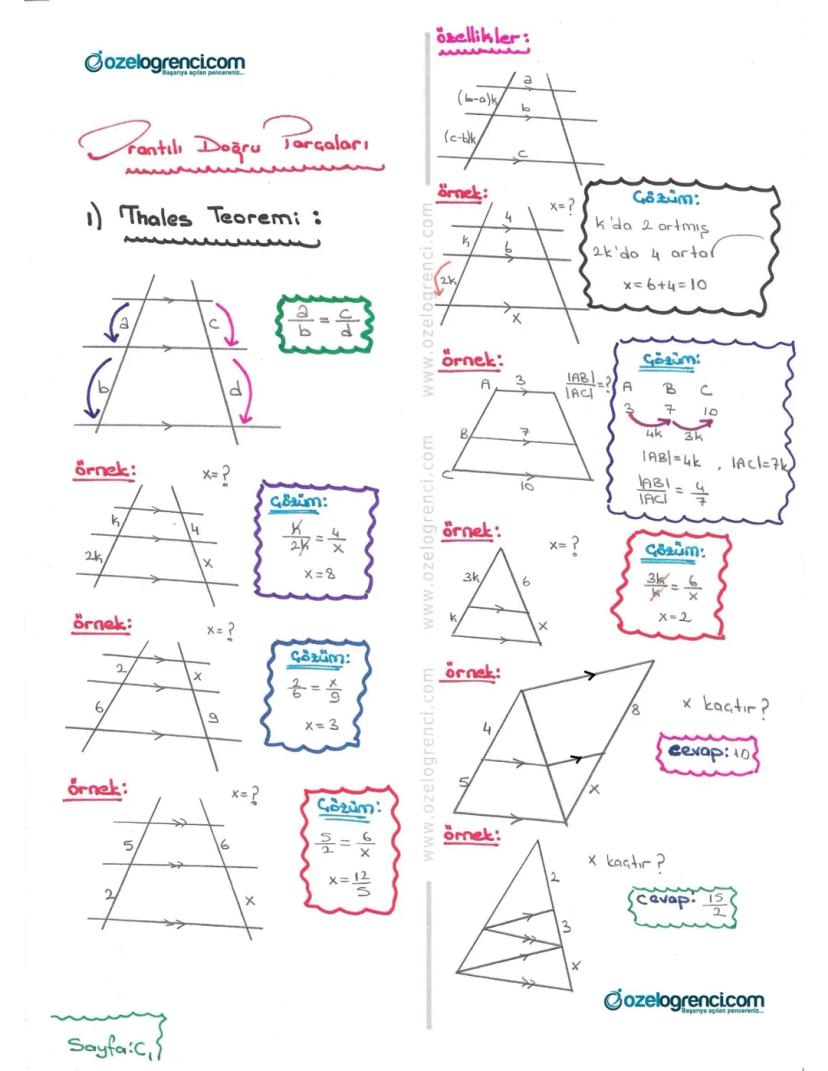 ozelogrenci.com
Başarıya açılan pencereniz...
Orantılı Doğru Parçaları
1) Thales Teoremi :
a
c
b
d
a/b = c/d
örnek:
x=?
k
4
2k
x
Çözüm:
k/2k = 4/x
x=8
örnek:
x=?
2
x
6
9
Çözüm:
2/6 = x/9
x=3
örnek:
x=?
5
6
2
x
Çözüm:
5/2 = 6/x
x=12/5
Sayfa:C₁
özellikler:
a
(b-a)k
b
(c-b)k
c
örnek:
x=?
4
k
6
2k
x
Çözüm:
k'da 2 artmış
2k'da 4 artar
x=6+4=10
örnek:
A
3
|AB|/|AC|=?
B
7
C
10
Çözüm:
A B C
3 7 10
4k 3k
|AB|=4k , |AC|=7k
|AB|/|AC| = 4/7
örnek:
x=?
3k
6
k
x
Çözüm:
3k/k = 6/x
x=2
örnek:
4
8
5
x
x kaçtır?
cevap:10
örnek:
2
3
x
x kaçtır?
cevap: 15/2
ozelogrenci.com
Başarıya açılan pencereniz...
www.ozelogrenci.com
www.ozelogrenci.com
www.ozelogrenci.com